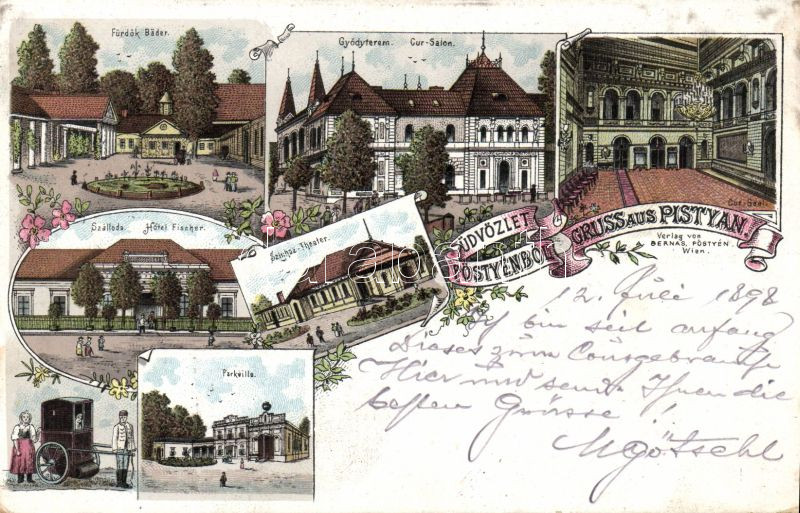 Fürdők Bäder.
Gyógyterem. Cur-Salon.
Cur-Saal.
Szálloda. Hôtel Fischer.
Szinház-Theater.
ÜDVÖZLET
PÖSTYÉNBŐL
GRUSS AUS PISTYAN.
Verlag von
BERNAS, PÖSTYÉN.
Wien.
Parkvilla.
12. Juli 1898
Ich bin seit anfang
Dieses zum Courgebrauche
Hier und sende Ihnen die
besten Grüsse!